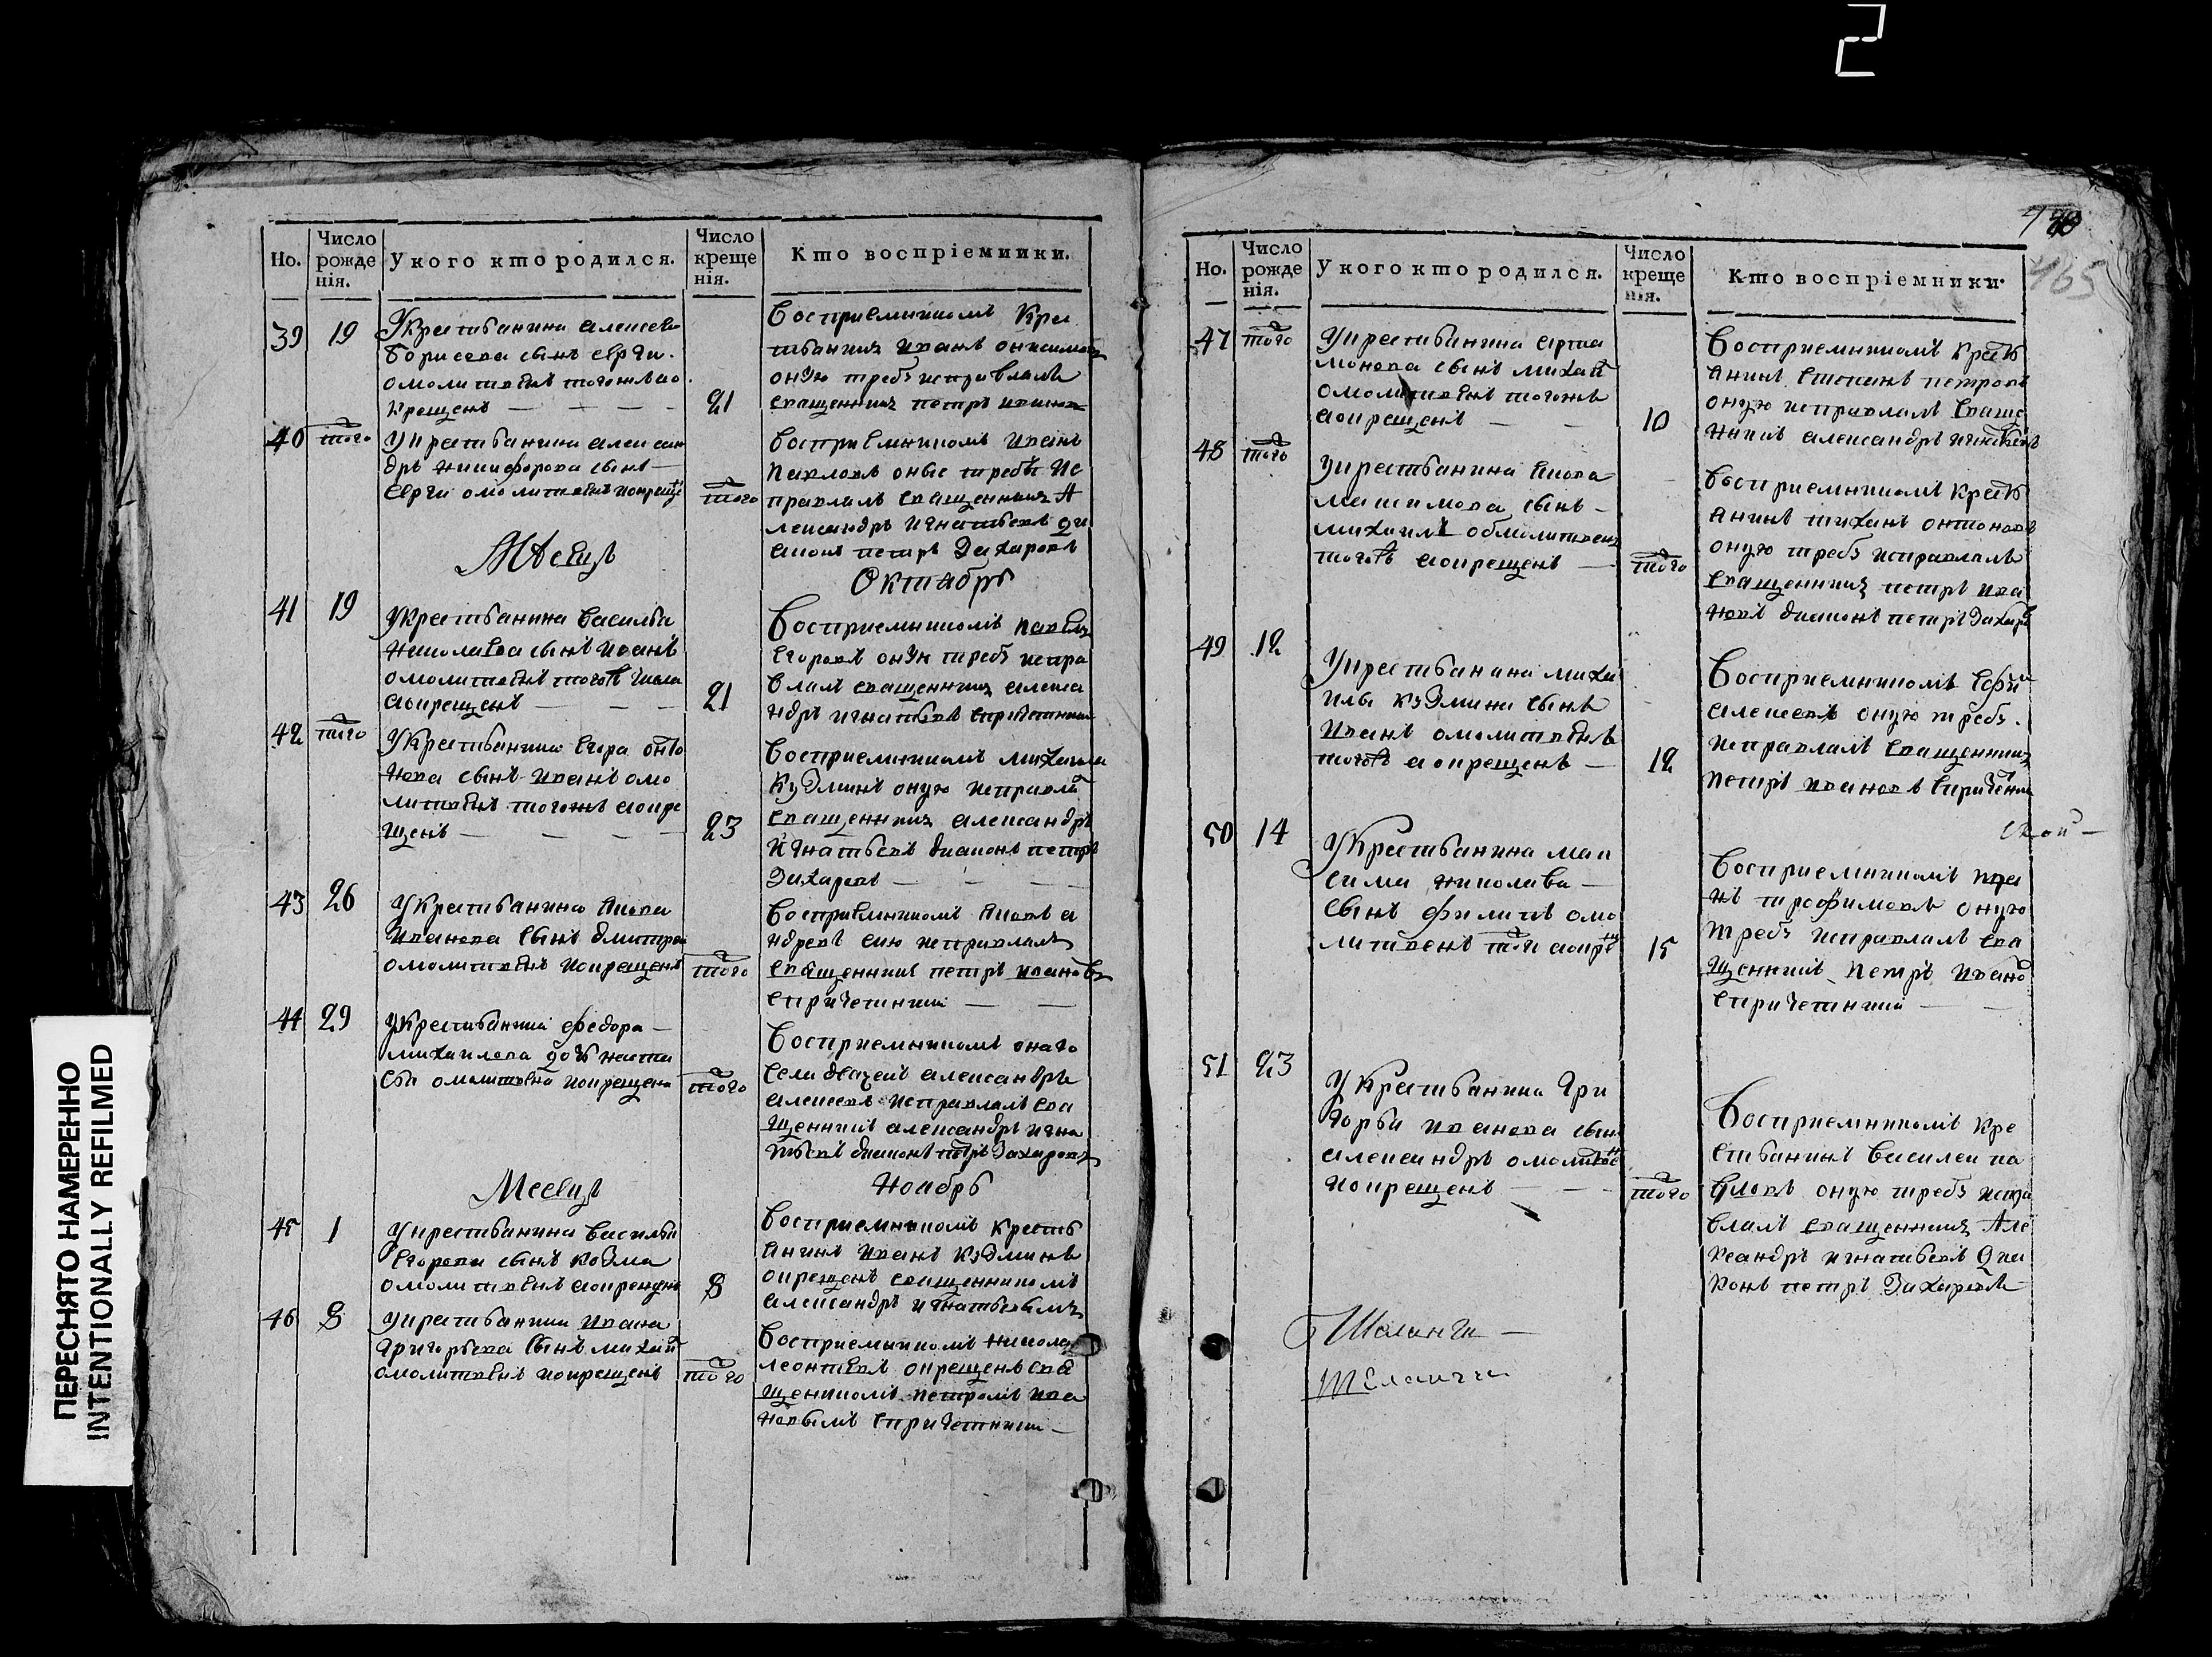 2
ПЕРЕСНЯТО НАМЕРЕННО
INTENTIONALLY REFILMED
Но.
Число рожде нія.
У кого кто родился.
Число креще нія.
Кто воспріемники.
39 19
Укрестьянина алексея
борисова сынъ серги
омолитвенъ тогожъ ио
крещенъ
21
Восприемникомъ Кре
стьянинъ иванъ онисимовъ
оную требу исправлялъ
священникъ петръ ивановъ
40 того
Укрестьянина алексан
дръ никифорова сынъ
серги омолитвенъ иокреще
того
восприемникомъ иванъ
павловъ оные требы ис
правлялъ священникъ А
лександръ игнатьевъ ди
аконъ петръ Захаровъ
Месяцъ Октябрь
41 19
Укрестьянина василья
николаева сынъ иванъ
омолитвенъ тогожъ числа
аокрещенъ
21
Восприемникомъ павелъ
Егоровъ оную требу испра
влялъ священникъ алекса
ндръ игнатьевъ спричетники
42 того
Укрестьянина Егора анто
нова сынъ иванъ омо
литвенъ тогожъ аокре
щенъ
23
Восприемникомъ михаила
Кузминъ оную исправля
священникъ александръ
игнатьевъ диаконъ петръ
Захаровъ
43 26
Укрестьянина якова
иванова сынъ дмитреи
омолитвенъ иокрещенъ
того
Восприемникомъ яковъ а
ндревъ сию исправлялъ
священникъ петръ ивановъ
спричетники
44 29
Укрестьянина федора
михаилова дочь наста
сья омолитвена иокрещена
того
Восприемникомъ онаго
села дьячекъ александръ
алексеевъ исправлялъ свя
щенникъ александръ игна
тьевъ диаконъ петръ Захаровъ
Месяцъ Ноябрь
45 1
Укрестьянина василья
Егорова сынъ козма
омолитвенъ аокрещенъ
8
Восприемникомъ кресть
янинъ иванъ кузминъ
окрещенъ священникомъ
александръ игнатьевымъ
46 8
Укрестьянина ивана
григорьева сынъ михаи
омолитвенъ иокрещенъ
того
Восприемникомъ никола
леонтьевъ окрещенъ свя
щеникомъ петромъ ива
новымъ спричетники
465
Но.
Число рожде нія.
У кого кто родился.
Число креще нія.
Кто воспріемники.
47 того
Укрестьянина арта
монова сынъ михаи
омолитвенъ тогожъ
аокрещенъ
10
Восприемникомъ кресть
янинъ степанъ петровъ
оную исправлялъ свяще
никъ александръ игнатьевъ
48 того
Укрестьянина якова
максимова сынъ
михаилъ обмолитвенъ
тогожъ аокрещенъ
того
Восприемникомъ кресть
янинъ тиханъ онтоновъ
оную требу исправлялъ
священникъ петръ ива
новъ диаконъ петръ Захаровъ
49 12
Укрестьянина миха
илы кузмина сынъ
иванъ омолитвенъ
тогожъ аокрещенъ
12
Восприемникомъ Ефи
алексеевъ оную требу
исправлялъ священникъ
петръ ивановъ спричетники
50 14
Укрестьянина мак
сима николаева
сынъ филипъ омо
литвенъ того аокрещ
15
Восприемникомъ
трофимовъ оную
требу исправлялъ свя
щенникъ петръ ивано
спричетники
51 23
Укрестьянина Гри
горья иванова сынъ
александръ омолитвен
иокрещенъ
того
Восприемникомъ кре
стьянинъ василеи па
вловъ оную требу испра
влялъ священникъ Але
ксандръ игнатьевъ Диа
конъ петръ Захаровъ